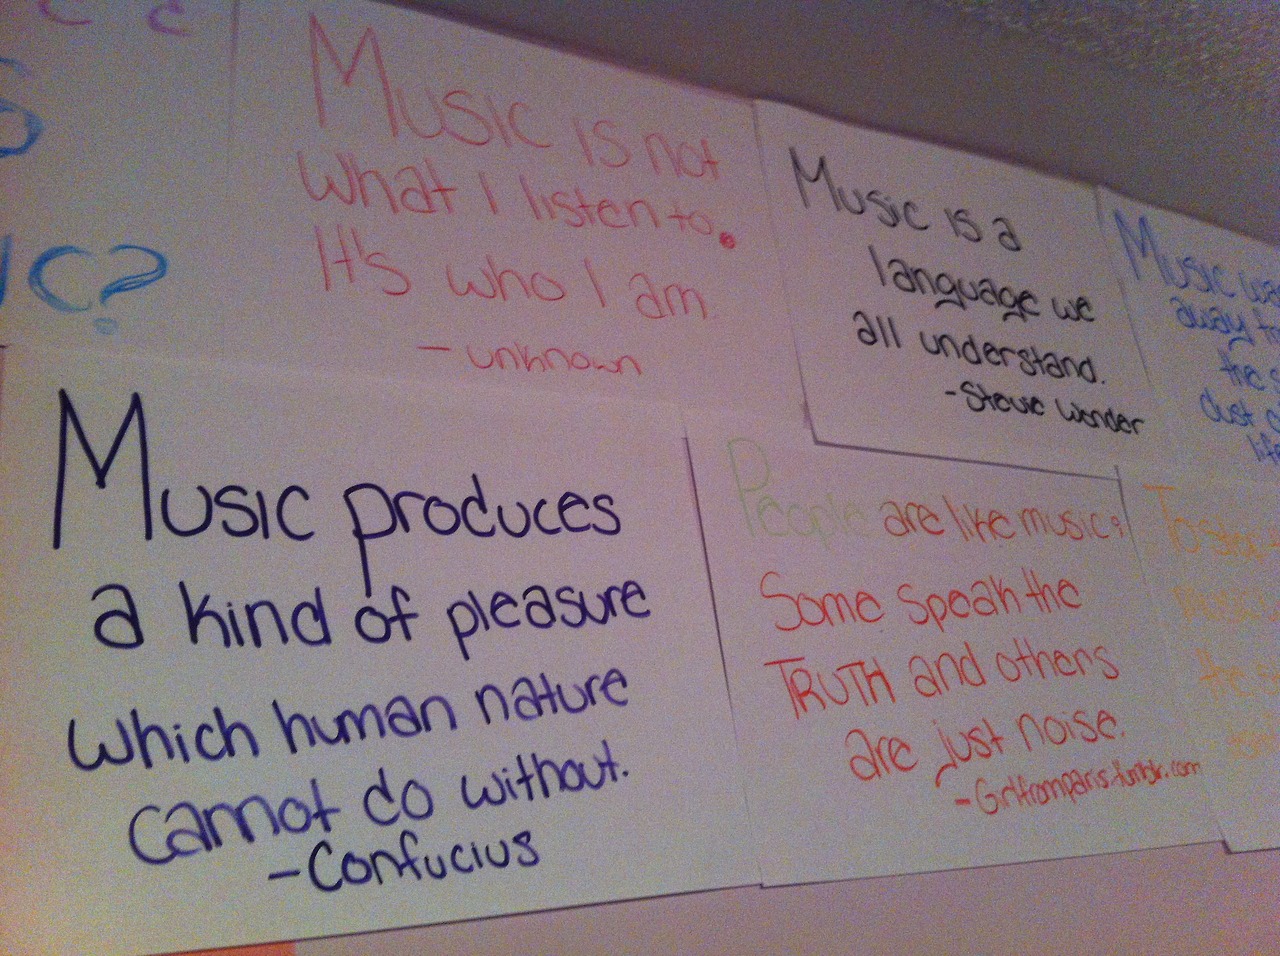 C?
Music is not
What I listen to.
It's who I am.
- unknown
Music is a
language we
all understand.
- Stevie Wonder
Music
away
the
dust
Music produces
a kind of pleasure
which human nature
cannot do without.
- Confucius
People are like music;
Some speak the
TRUTH and others
are just noise.
- Girlfromparis.tumblr.com
To
music
the